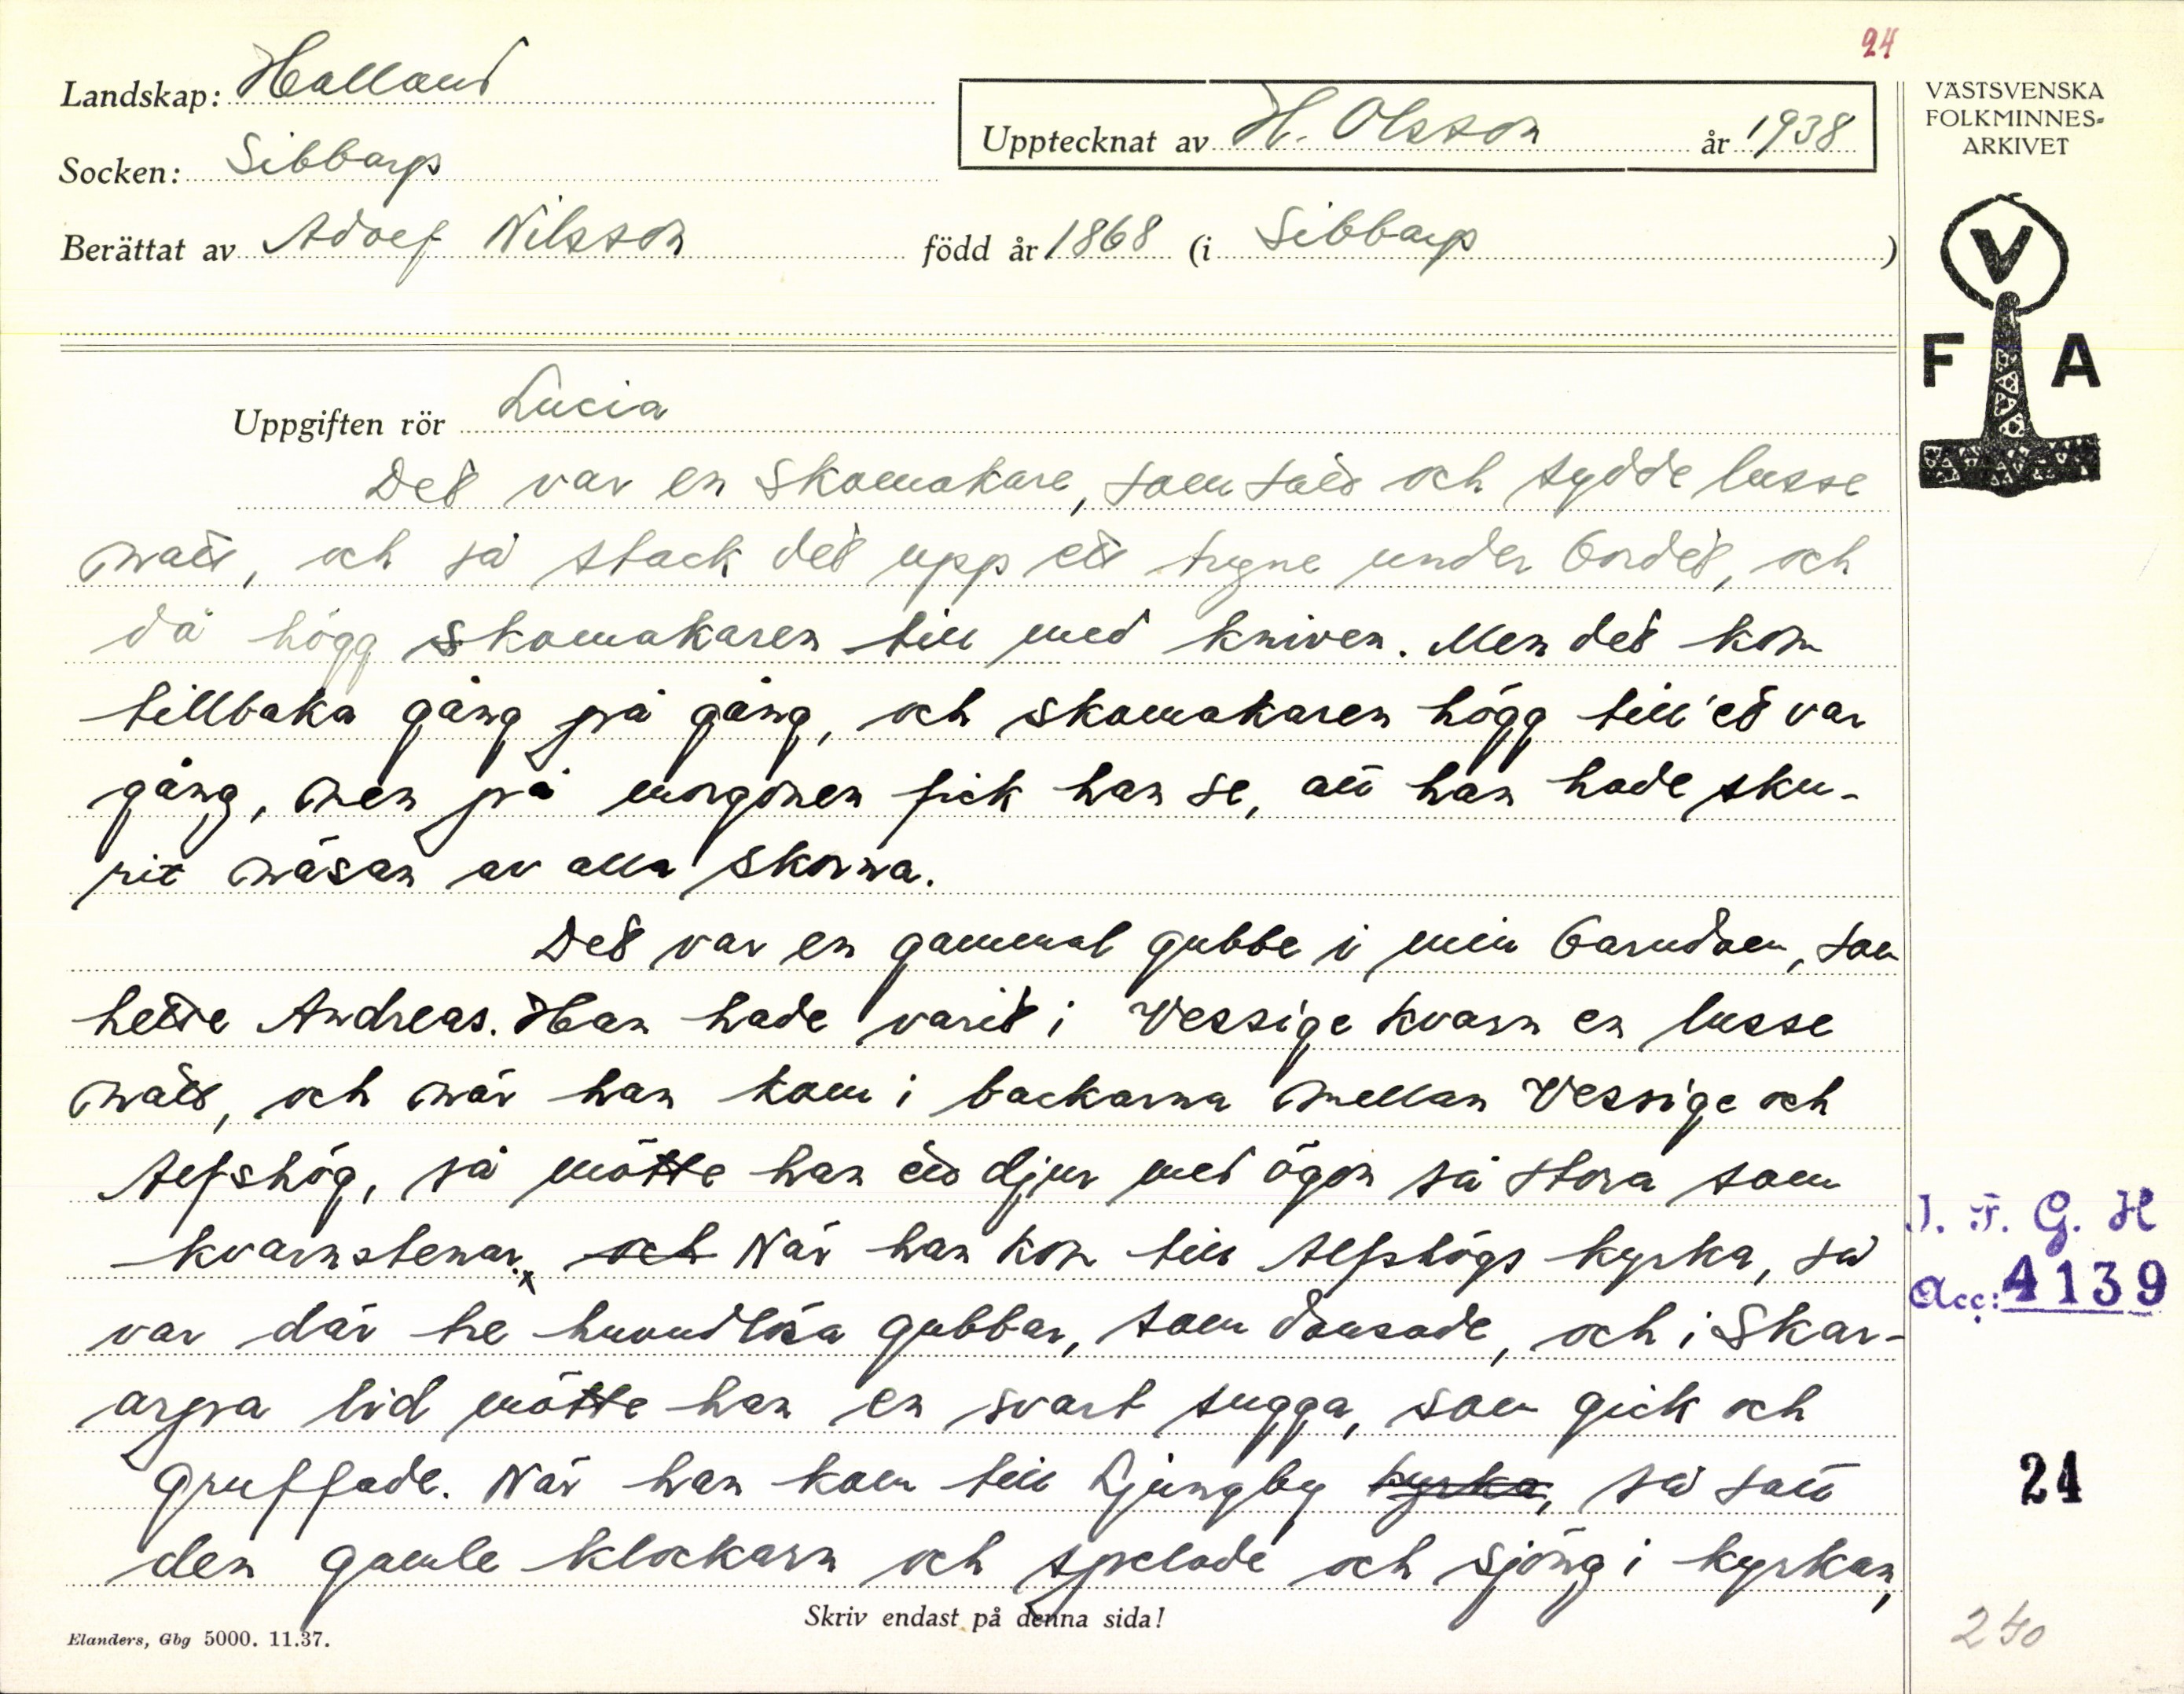 24
Landskap: Halland
Upptecknat av H. Olsson år 1938
VÄSTSVENSKA
FOLKMINNES-
ARKIVET
Socken: Sibbarp
Berättat av Adolf Nilsson född år 1868 (i Sibbarp)
V
F A
Uppgiften rör Lucia
Det var en skomakare, som satt och sydde lusse
natt, och så stack det upp ett tryne under bordet, och
då högg skomakaren till med kniven. Men det kom
tillbaka gång på gång, och skomakaren högg till 'et var
gång, men på morgonen fick han se, att han hade sku-
rit näsan av alla skorna.
Det var en gammal gubbe i min barndom, som
hette Andreas. Han hade varit i Vessige kvarn en lusse
natt, och när han kom i backarna mellan Vessige och
Alfshög, så mötte han ett djur med ögon så stora som
kvarnstenar. x och När han kom till Alfshögs kyrka, så
var där tre huvudlösa gubbar, som dansade, och i Skar-
arpa lid mötte han en svart sugga, som gick och
gruffade. När han kom till Ljungby kyrka, så satt
den gamle klockarn och spelade och sjöng i kyrkan,
J. F. G. H
Acc: 4139
24
240
Skriv endast på denna sida!
Elanders, Gbg 5000. 11.37.